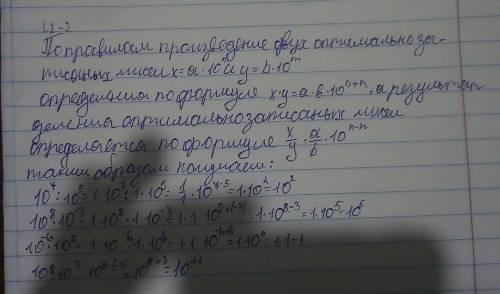 1.2-2
По правилам произведение двух оптимально за-
писаных чисел x=a·10ⁿ и y=b·10ᵐ
определения по формуле x·y=a·b·10ⁿ⁺ᵐ, а результат
деления оптимально записаных чисел
определяется по формуле x/y · a/b · 10ⁿ⁻ⁿ
таким образом получаем:
10⁷:10⁵=1·10⁷:1·10⁵=1/1·10⁷⁻⁵=1·10²=10²
10⁸·10⁻³=1·10⁸·1·10⁻³=1·1 10⁸⁺⁽⁻³⁾=1·10⁸⁻³=1·10⁵=10⁵
10⁻⁶·10⁶=1·10⁻⁶·1·10⁶=1·1 10⁻⁶⁺⁶=1·10⁰=1·1=1
10⁸ 10⁻³ 10⁸⁻⁽⁻³⁾=10⁸⁺³=10¹¹